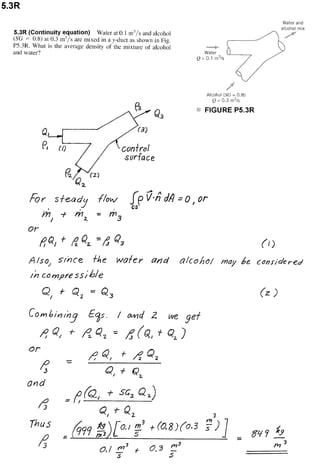 5.3R
5.3R (Continuity equation) Water at 0.1 m³/s and alcohol
(SG = 0.8) at 0.3 m³/s are mixed in a y-duct as shown in Fig.
P5.3R. What is the average density of the mixture of alcohol
and water?
Water and
alcohol mix
Water
Q = 0.1 m³/s
Alcohol (SG = 0.8)
Q = 0.3 m³/s
FIGURE P5.3R
ρ₃ Q₃
Q₁ (3)
ρ₁ (1) control
surface
ρ₂ (2)
Q₂
For steady flow ∫cs ρ V⃗·n̂ dA = 0, or
ṁ₁ + ṁ₂ = ṁ₃
or
ρ₁Q₁ + ρ₂Q₂ = ρ₃Q₃ (1)
Also, since the water and alcohol may be considered
incompressible
Q₁ + Q₂ = Q₃ (2)
Combining Eqs. 1 and 2 we get
ρ₁Q₁ + ρ₂Q₂ = ρ₃(Q₁ + Q₂)
or
ρ₃ = (ρ₁Q₁ + ρ₂Q₂) / (Q₁ + Q₂)
and
ρ₃ = ρ₁(Q₁ + SG₂ Q₂) / (Q₁ + Q₂)
Thus
ρ₃ = (999 kg/m³)[0.1 m³/s + (0.8)(0.3 m³/s)] / (0.1 m³/s + 0.3 m³/s) = 849 kg/m³